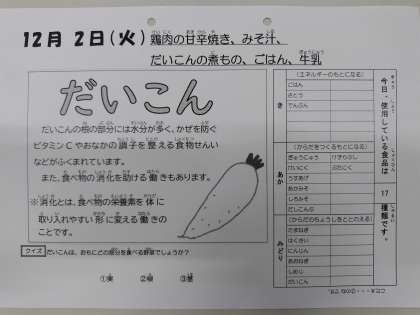 12月 2日(火) 鶏肉の甘辛焼き、みそ汁、
だいこんの煮もの、ごはん、牛乳
だいこん
だいこんの根の部分には水分が多く、かぜを防ぐ
ビタミンCやおなかの調子を整える食物せんい
などがふくまれています。
また、食べ物の消化を助ける働きもあります。
※消化とは、食べ物の栄養素を体に
取り入れやすい形に変える働きの
ことです。
クイズ だいこんは、おもにどの部分を食べる野菜でしょうか?
①実 ②根 ③茎
今日、使用している食品は
17
種類です。
き
(エネルギーのもとになる)
ごはん
さとう
でんぷん
あか
(からだをつくるもとになる)
ぎゅうにゅう
けいにく
あかみそ
しろみそ
みどり
(からだのちょうしをととのえる)
はくさい
にんじん
しめじ
だいこん